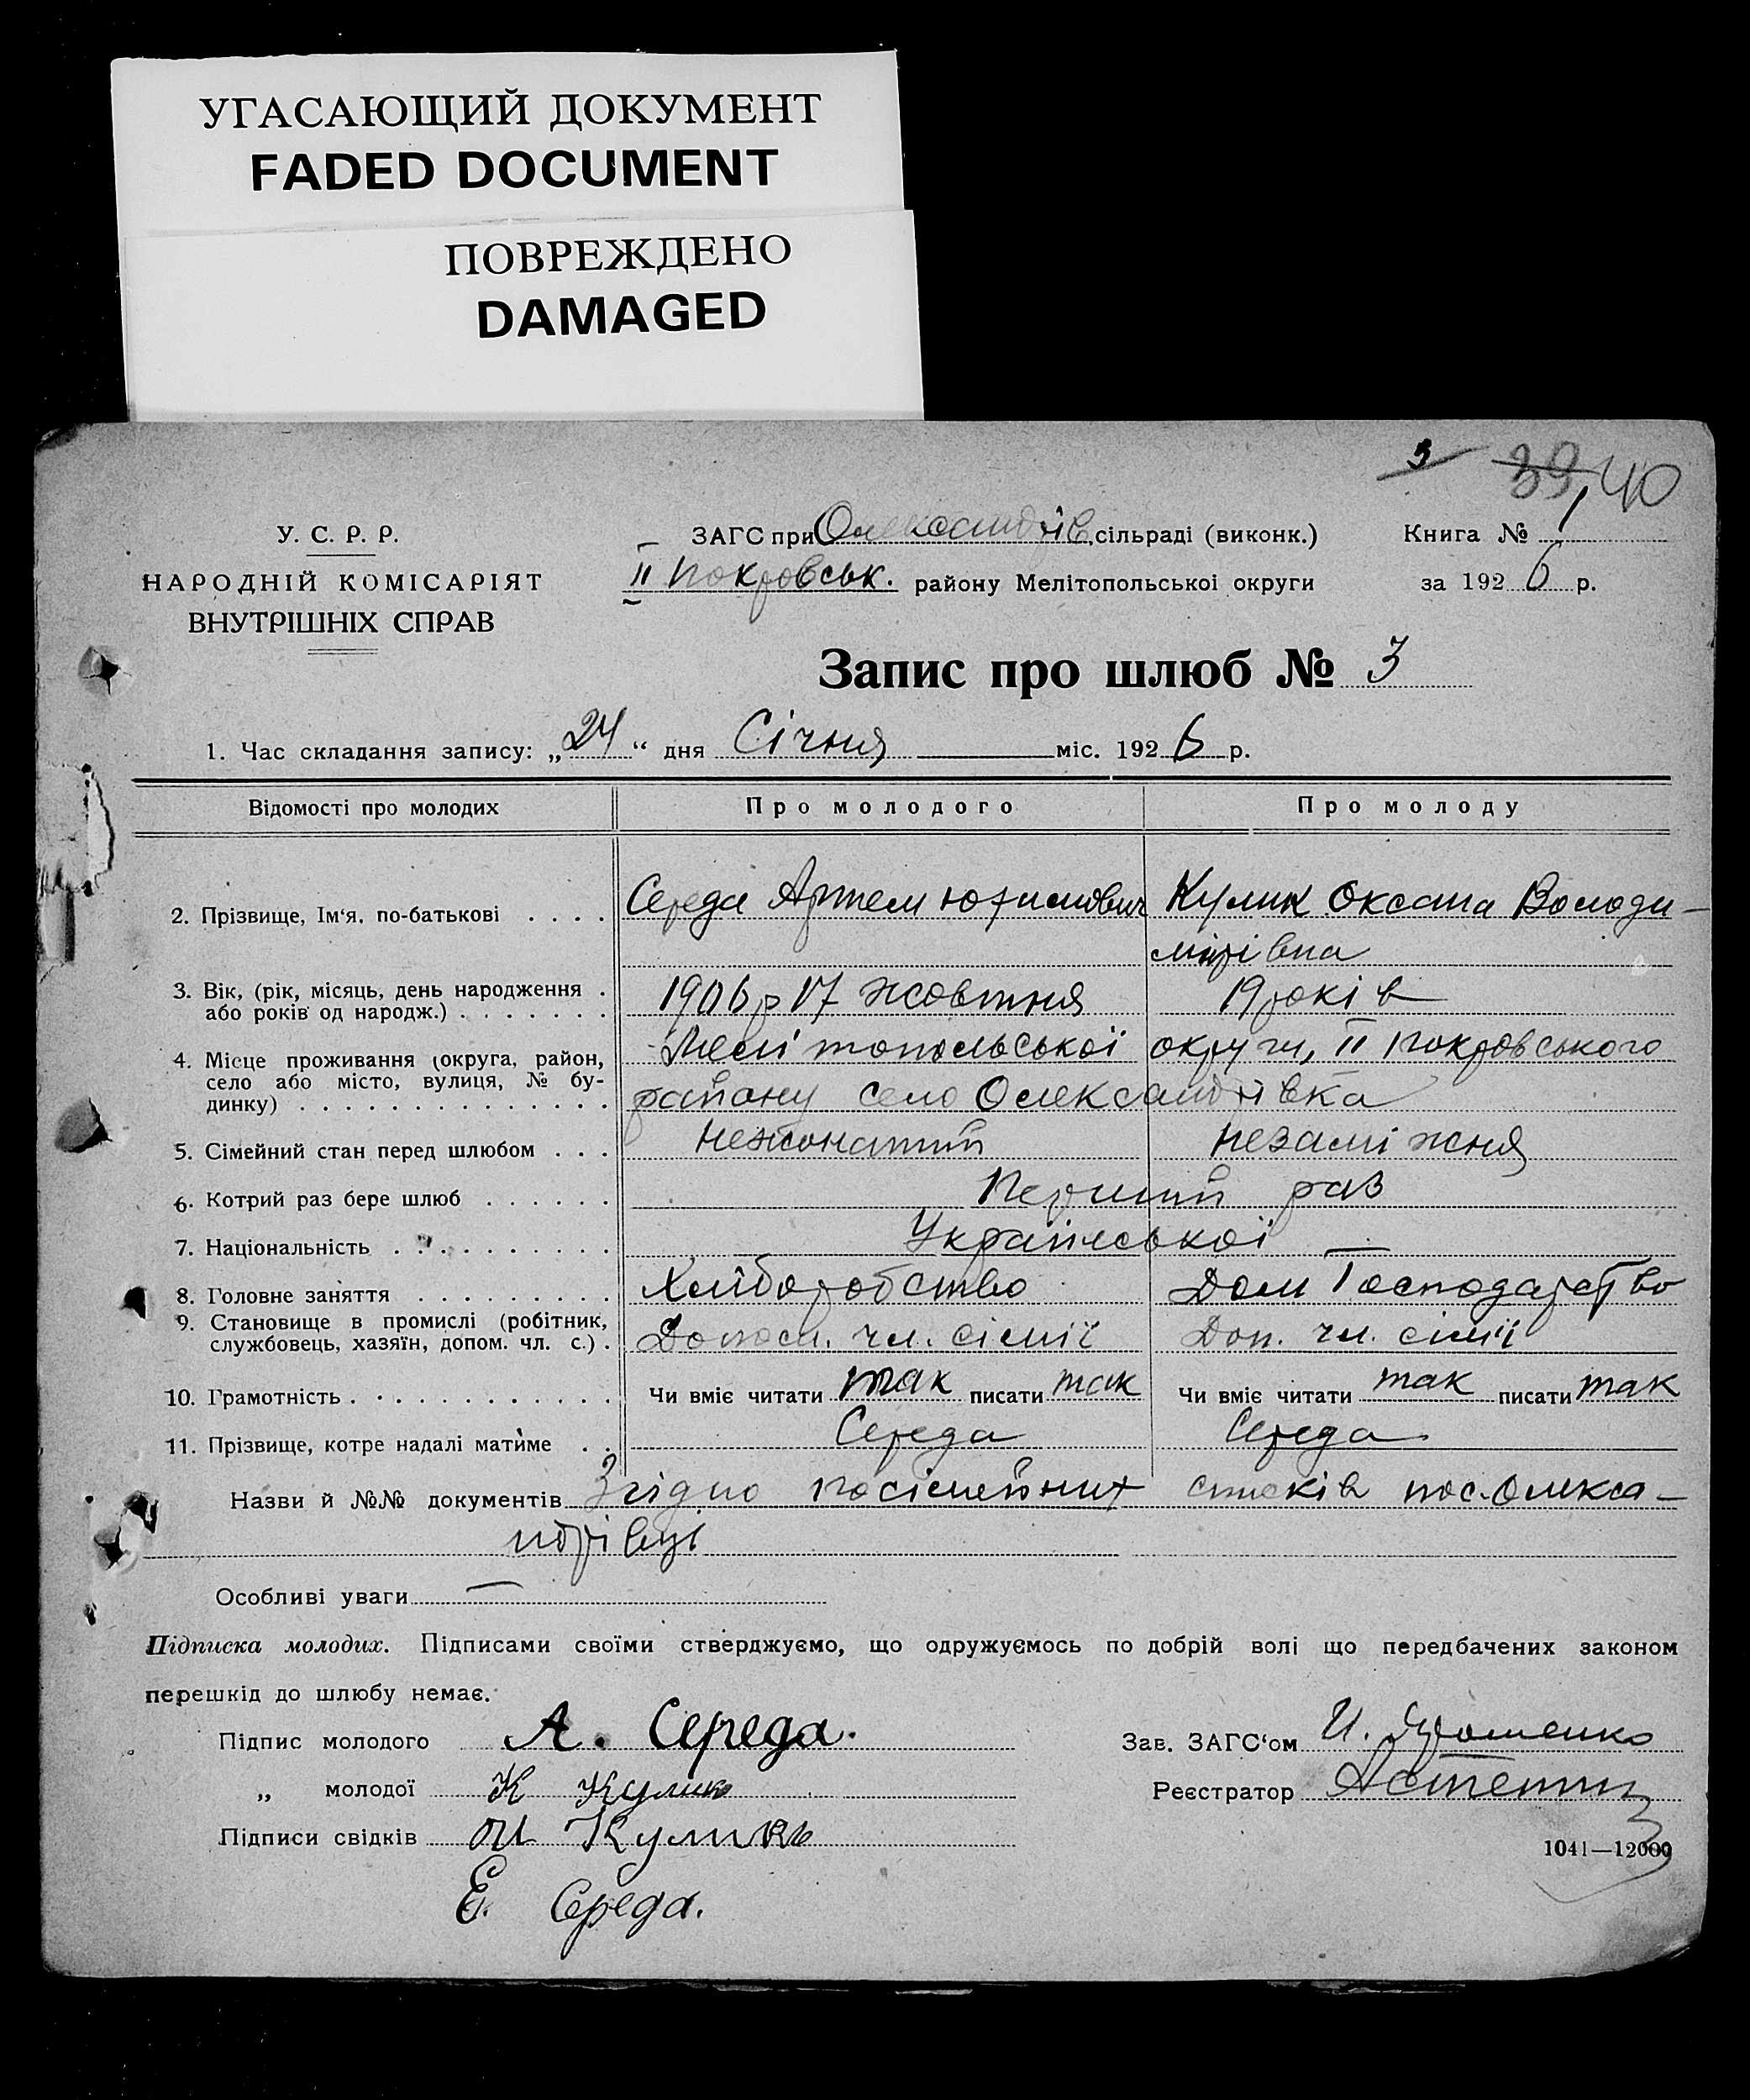 УГАСАЮЩИЙ ДОКУМЕНТ
FADED DOCUMENT
ПОВРЕЖДЕНО
DAMAGED
3 39 40
У. С. Р. Р.
НАРОДНІЙ КОМІСАРІЯТ
ВНУТРІШНІХ СПРАВ
ЗАГС при Олександрів. сільраді (виконк.)
II Покровськ. району Мелітопольської округи
Книга № 1
за 1926 р.
Запис про шлюб № 3
1. Час складання запису: „24“ дня Січня міс. 1926 р.
Відомості про молодих Про молодого Про молоду
2. Прізвище, Ім‘я, по-батькові . . . . Середа Артем Юхимович Кулик Оксана Володи-
мирівна
3. Вік, (рік, місяць, день народження . або років од народж.) . . . . . . . 1906 р 17 жовтня 19 років
4. Місце проживання (округа, район, Мелітопольської округи, II Покровського
село або місто, вулиця, № бу-
динку) . . . . . . . . . . . . . . району село Олександрівка
5. Сімейний стан перед шлюбом . . . нежонатий незаміжня
6. Котрий раз бере шлюб . . . . . . Перший раз
7. Національність . . . . . . . . . . Української —
8. Головне заняття . . . . . . . . . Хліборобство Дом Господарство
9. Становище в промислі (робітник,
службовець, хазяїн, допом. чл. с.) . Допом. чл. сімії Доп. чл. сімії
10. Грамотність . . . . . . . . . . . Чи вміє читати так писати так Чи вміє читати так писати так
11. Прізвище, котре надалі матиме . . Середа Середа
Назви й №№ документів Згідно посімейних списків пос. Олекса-
ндрівці
Особливі уваги —
Підписка молодих. Підписами своїми стверджуємо, що одружуємось по добрій волі що передбачених законом
перешкід до шлюбу немає.
Підпис молодого А. Середа.
„ молодої К Кулик
Підписи свідків Кулик
Е. Середа.
Зав. ЗАГС‘ом И.
Реєстратор
1041—12000